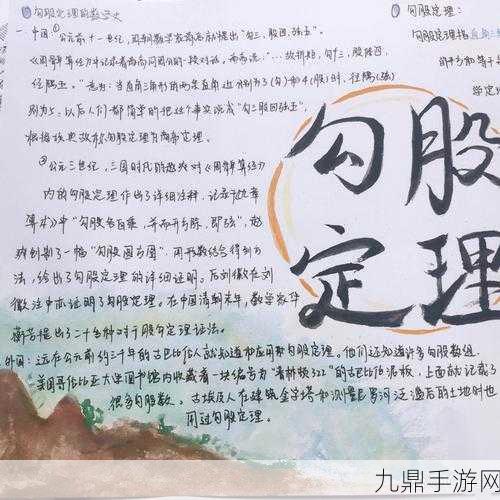 勾股定理的数学史
一、中国:①公元前十一世纪,周朝数学家商高就提出"勾三、股四、弦五"。
《周髀算经》中记录着商高同周公的一段对话。商高说:"…故折矩,勾广三,股修四,
经隅五。"
意为:当直角三角形的两条直角边分别为3(勾)和4(股)时,径隅(弦)
则为5。以后人们都简单的把这个事实说成"勾三股四弦五",
根据该典故称勾股定理为商高定理。
②公元三世纪,三国时代的赵爽对《周髀算经》
内的勾股定理作出了详细注释,记录于《九章
算术》中"勾股各自乘,并而开方除,即弦",赵
爽创制了一幅"勾股圆方图",用形数结合得到方
法,给出了勾股定理的详细证明。后刘徽在刘
徽注中亦证明了勾股定理。在中国清朝末年,数学家华
蘅芳提出了二十多种对于勾股定理证法。
外国:远在公元前约三千年的古巴比伦人就知道和应用勾股定理。他们还知道许多勾股数组。
美国哥伦比亚大学图书馆内收藏着一块编号为"普林顿322"的古巴比伦泥板,上面就记载了
很多勾股数。古埃及人在建筑金字塔和测量尼罗河泛滥后的土地时也
用过勾股定理。
勾股定理:
勾股定理指
勾股
定理
九鼎手游网